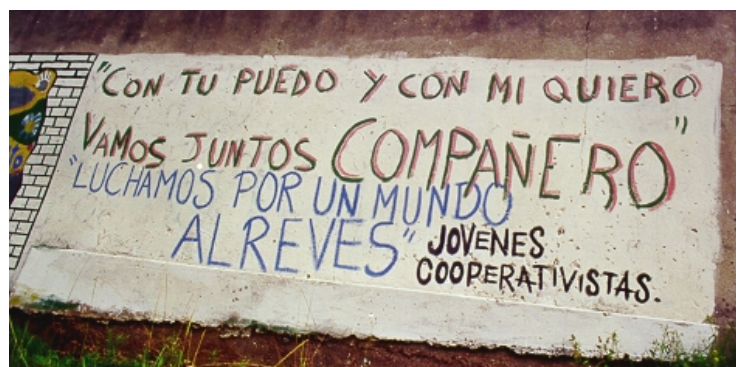 "CON TU PUEDO Y CON MI QUIERO
VAMOS JUNTOS COMPAÑERO"
"LUCHAMOS POR UN MUNDO
AL REVES"
JOVENES
COOPERATIVISTAS.